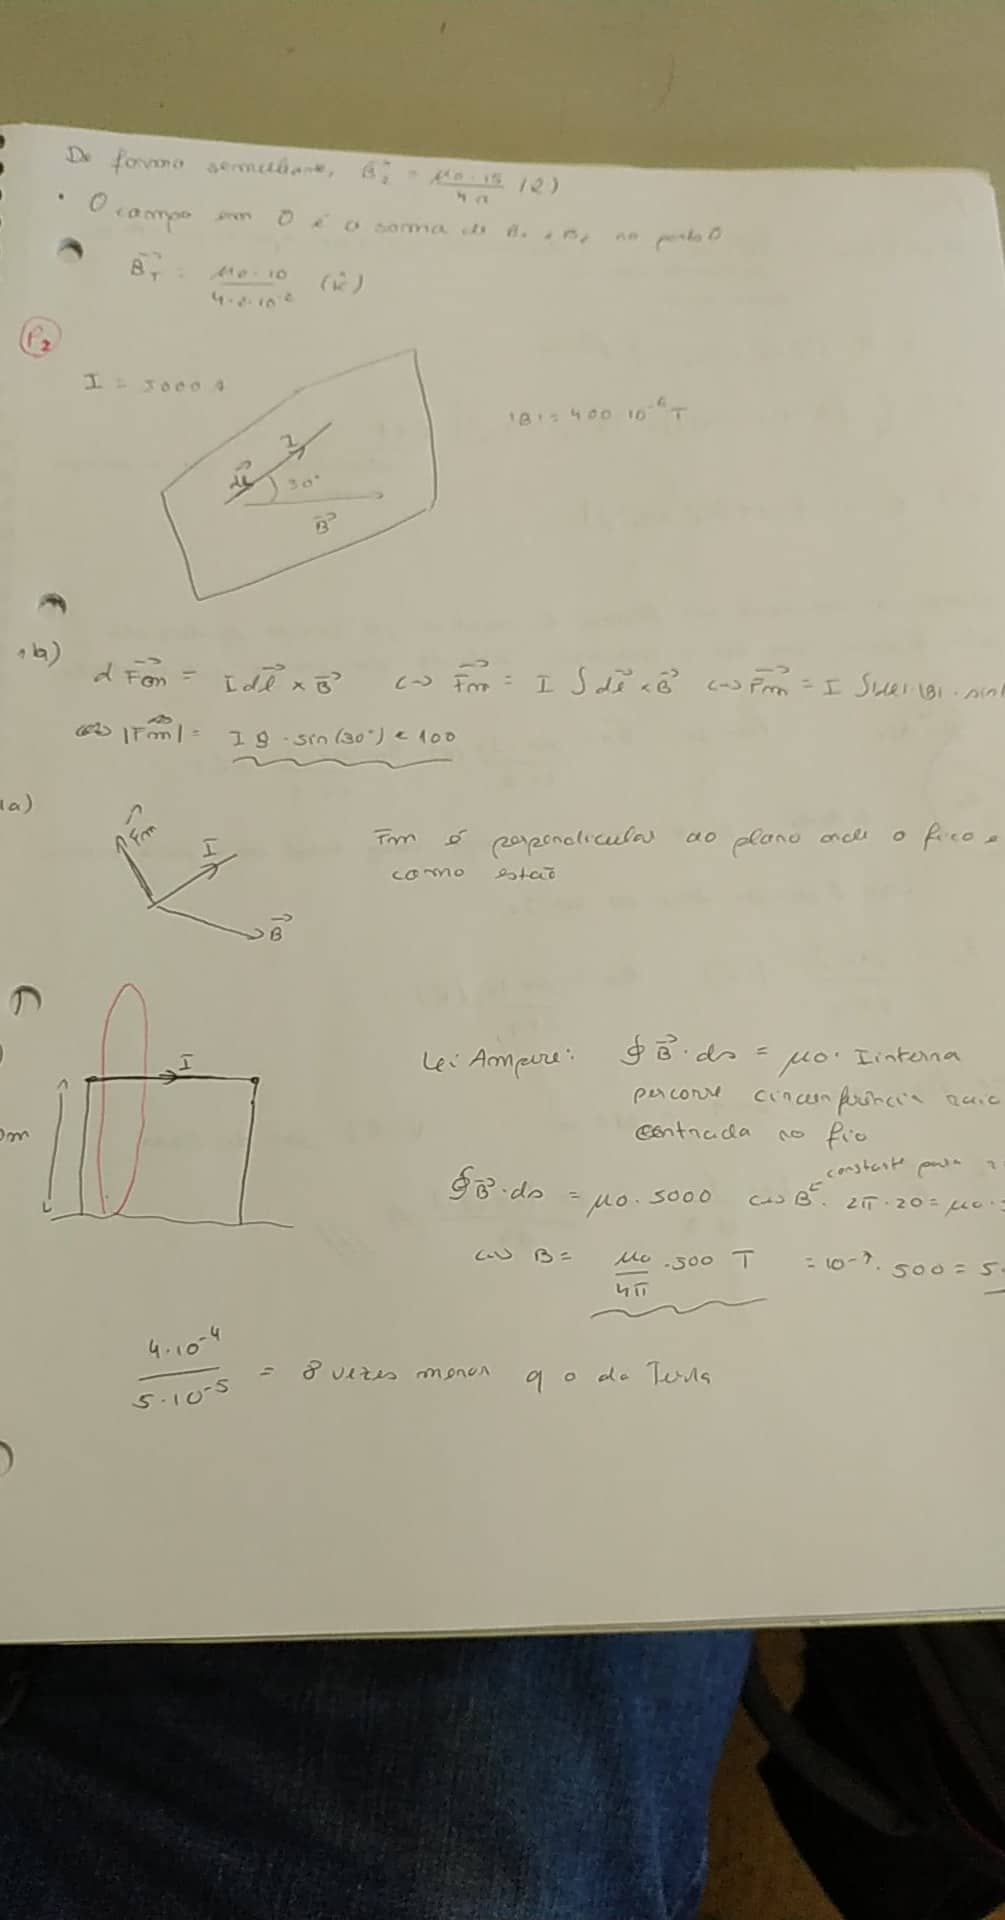 De forma semelhante, B₂ = μ0 · 15 / 4π (2)
· O campo em O é a soma de B₁ + B₂ no ponto O
B_T = μ0 · 10 (k̂)
P2
I = 5000 A
|B| = 400 10⁻⁶ T
I
dl 30°
B
b) dFm = I dl × B ↔ Fm = I ∫ dl × B ↔ Fm = I ∫ |dl| · |B| ·
|Fm| = I B · sin(30°) × 100
a) Fm
I Fm é perpendicular ao plano onde o fico e
como estão
B
I Lei Ampere: ∮ B · ds = μ0 · Iinterna
percorre circunferência raio
centrada no fio
constante para
∮ B · ds = μ0 · 5000 ↔ B · 2π · 20 = μ0 ·
↔ B = μ0/4π · 500 T = 10⁻⁷ · 500 = 5
4·10⁻⁴ / 5·10⁻⁵ = 8 vezes menor q o da Terra